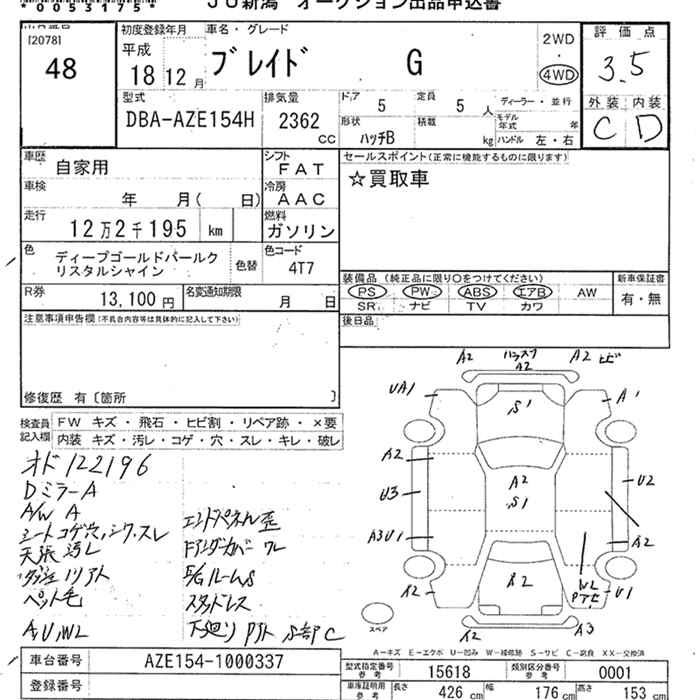 *0053175* JU新潟 オークション出品申込書
[2078]
48
初度登録年月
平成
18 12月
車名・グレード
ブレイド G
2WD
・
4WD
評価点
3.5
外装 内装
C D
型式
DBA-AZE154H
排気量
2362 cc
ドア 5
定員 5 人
形状 ハッチB
積載 kg
ディーラー・並行
モデル年式 年
ハンドル 左・右
車歴 自家用
シフト FAT
車検 年 月( 日)
冷房 AAC
走行 12万2千195 km
燃料 ガソリン
色 ディープゴールドパールク
リスタルシャイン
色替
色コード 4T7
R券 13,100円
名変通知期限 月 日
セールスポイント(正常に機能するものに限ります)
☆買取車
装備品(純正品に限り○をつけてください)
PS PW ABS エアB AW
SR ナビ TV カワ
新車保証書
有・無
後日品
注意事項申告欄(不具合内容等は具体的に記入して下さい)
修復歴 有〔箇所 〕
検査員
記入欄
FW キズ・飛石・ヒビ割・リペア跡・×要
内装 キズ・汚レ・コゲ・穴・スレ・キレ・破レ
オド122196
DミラーA
A/W A
シートコゲ穴,シワ,スレ
天張汚レ
ペット毛
A,U,W2
エンドパネル歪
Fアンダーカバーワレ
E/GルームS
スタッドレス
下廻りPサト S部C
A2 A2 A2 ヒビ
UA1 S1 A1
A2 A2 S1
U3 U2
A3U1 A2
A2 A2 W2 U1
A2 A3
スペア
A−キズ E−エクボ U−凹み W−補修跡 S−サビ C−腐食 XX−交換済
車台番号 AZE154-1000337
登録番号
型式指定番号 参考 15618
類別区分番号 参考 0001
車庫証明用 参考 長さ 426 cm 幅 176 cm 高さ 153 cm